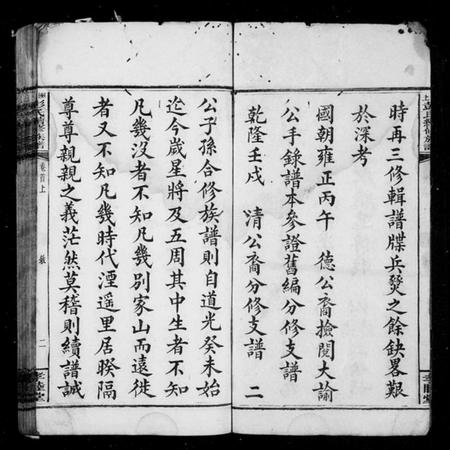 時再三修輯譜牒兵燹之餘缺畧艱
於深考
國朝雍正丙午 德公裔撿閱大諭
公手錄譜本參證舊編分修支譜
乾隆壬戌 清公裔分修支譜 二
公子孫合修族譜則自道光癸未始
迄今歲星將及五周其中生者不知
凡幾沒者不知凡幾別家山而遠徙
者又不知凡幾時代湮遥里居睽隔
尊尊親親之義茫然莫稽則續譜誠
卷首上
二